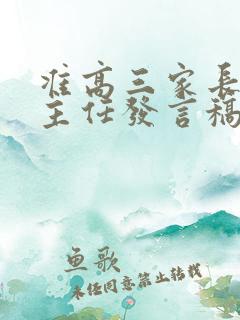 准高三家长
主任發言稿
鱼歌
未经同意禁止转载